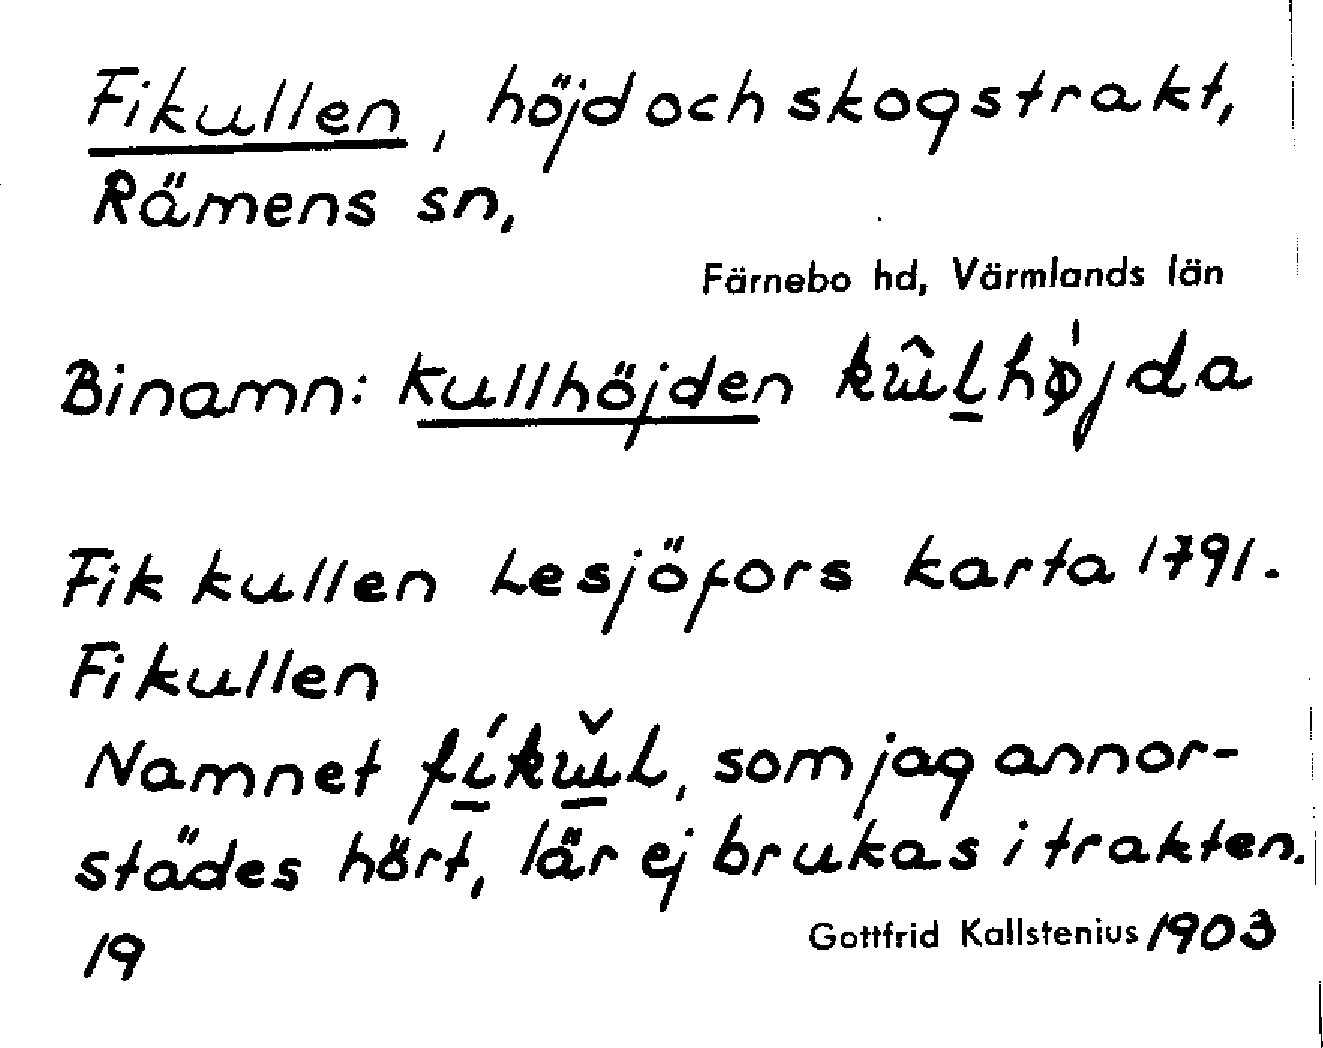 Fikullen, höjd och skogstrakt,
Rämens sn,
Färnebo hd, Värmlands län
Binamn: Kullhöjden
Fik kullen Lesjöfors karta 1791.
Fikullen
Namnet, som jag annor-
städes hört, lär ej brukas i trakten.
19 Gottfrid Kallstenius 1903